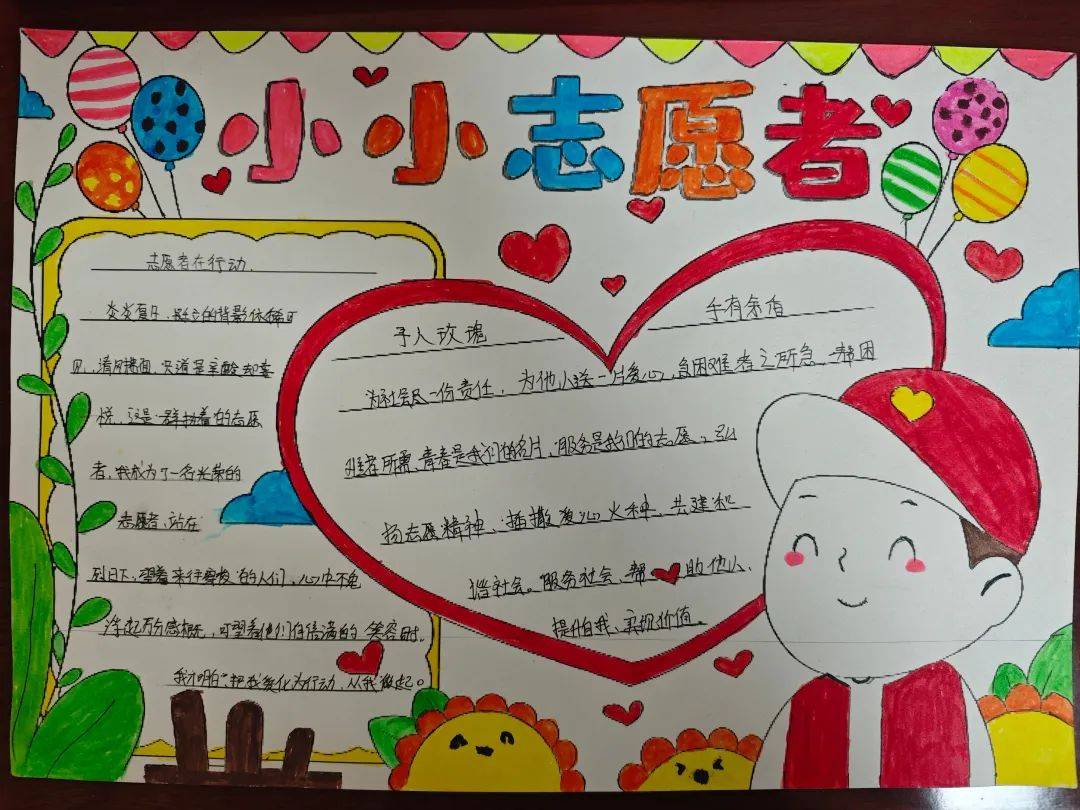 小小志愿者
志愿者在行动
炎炎夏日,
清风拂面,
悦,这是一群执着的志愿
者,我成为了一名光荣的
志愿者,站在
烈日下,望着来往的人们,心中不免
浮起万分感概,可望着他们的笑容时,
我才明白“把我爱化为行动,从我做起。
予人玫瑰
手有余香
为社会尽一份责任,为他人送一片爱心,急困难者之所急,帮困
难者所需,青春是我们的名片,服务是我们的志愿。弘
扬志愿精神,播撒爱心火种,共建和
谐社会。服务社会,帮助他人,
提升自我,实现价值。